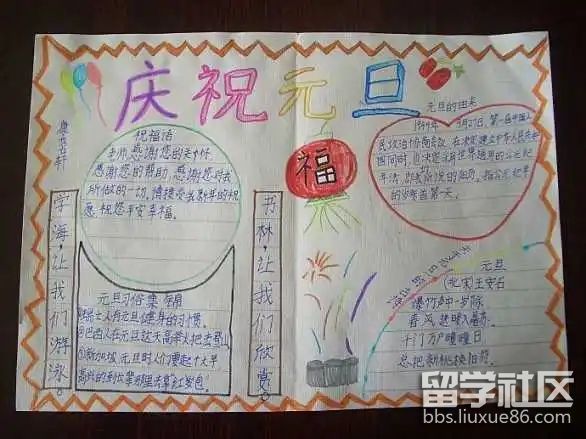 庆祝元旦
祝福语
老师,感谢您的关怀,
感谢您的帮助,感谢您对我
所做的一切,请接受我新年的祝
愿,祝您平安幸福。
学海·让我们游泳。
书林·让我们欣赏。
元旦习俗集
有元旦健身的习惯。
②巴西人在元旦这天高举火把去登山
③新加坡元旦时人们要起个大早
福
元旦的由来
1949年9月27日,第一届中国人
民政治协商会议,在决定建立中华人民共和
国同时,也决定采用世界通用的公元纪
的岁首第一天。
元旦
(北宋)王安石
爆竹声中一岁除
春风送暖入屠苏。
千门万户曈曈日
总把新桃换旧符。
留学社区
bbs.liuxue86.com